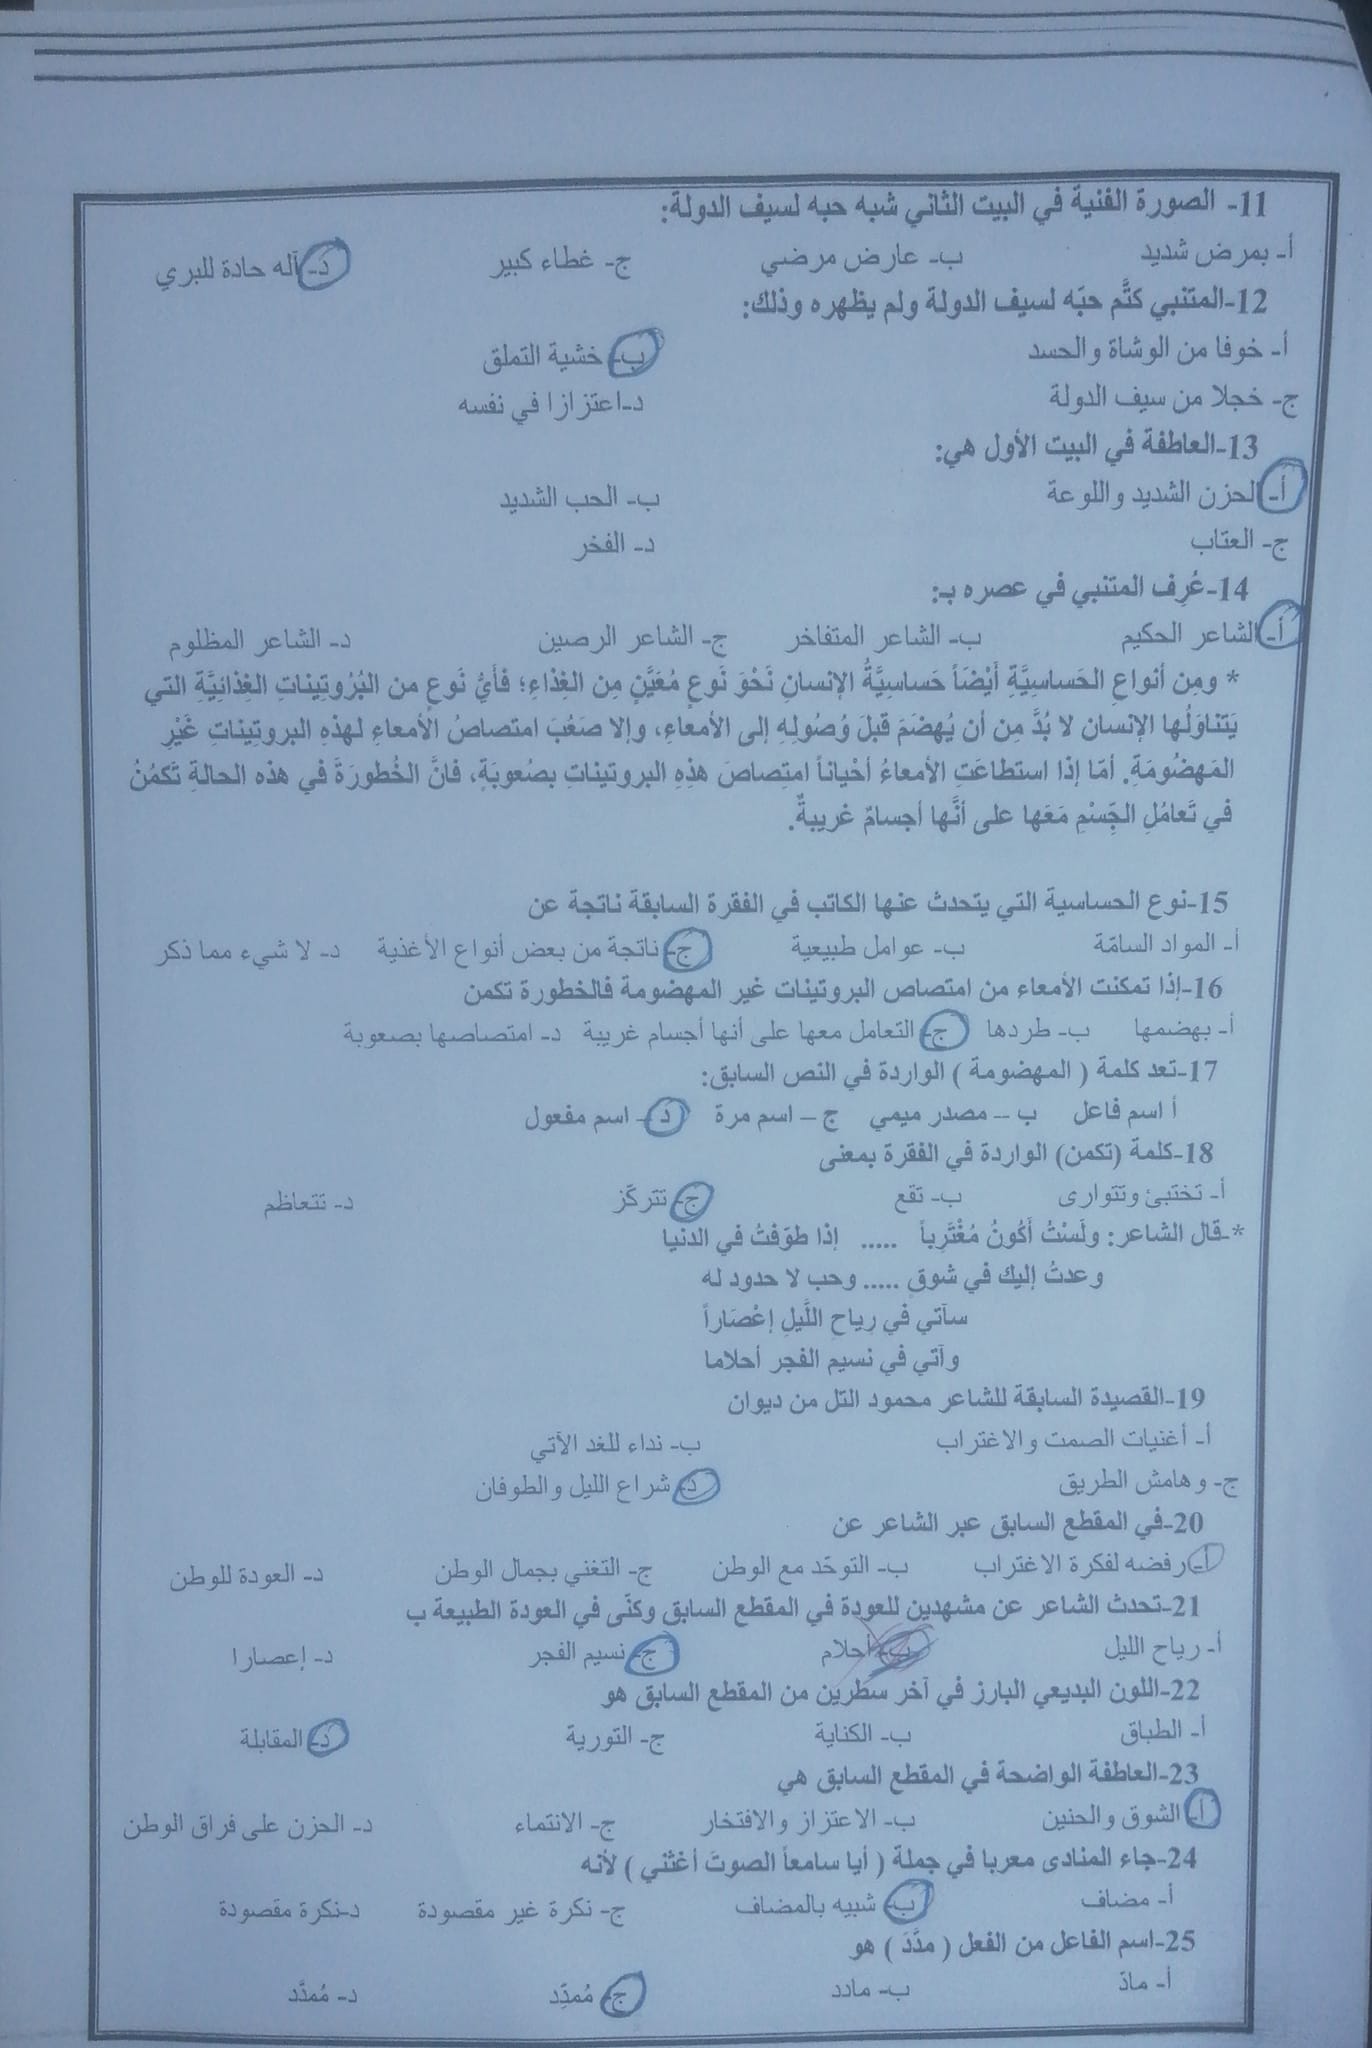 11- الصورة الفنية في البيت الثاني شبه حبه لسيف الدولة:
أ- بمرض شديد ب- عارض مرضي ج- غطاء كبير د- آله حادة للبري
12-المتنبي كتَّم حبّه لسيف الدولة ولم يظهره وذلك:
أ- خوفا من الوشاة والحسد ب- خشية التملق
ج- خجلا من سيف الدولة د-اعتزازا في نفسه
13-العاطفة في البيت الأول هي:
أ- الحزن الشديد واللوعة ب- الحب الشديد
ج- العتاب د- الفخر
14-عُرِف المتنبي في عصره بـ:
أ- الشاعر الحكيم ب- الشاعر المتفاخر ج- الشاعر الرصين د- الشاعر المظلوم
* ومِن أنواعِ الحَساسِيَّةِ أَيْضَاً حَساسِيَّةُ الإنسانِ نَحْوَ نَوعٍ مُعَيَّنٍ مِن الغِذاءِ؛ فأيُّ نَوعٍ من البُرُوتِيناتِ الغِذائِيَّةِ التي
يَتناوَلُها الإنسان لا بُدَّ مِن أن يُهضَمَ قبلَ وُصُولِهِ إلى الأمعاءِ، وإلا صَعُبَ امتصاصُ الأمعاءِ لهذهِ البروتِيناتِ غَيْرِ
المَهضُومَةِ. أمّا إذا استطاعَتِ الأمعاءُ أحْياناً امتِصاصَ هذِهِ البروتيناتِ بصُعوبَةٍ، فانَّ الخُطورَةَ في هذه الحالةِ تَكمُنُ
في تَعامُلِ الجِّسْمِ مَعَها على أنَّها أجسامٌ غريبةٌ.
15-نوع الحساسية التي يتحدث عنها الكاتب في الفقرة السابقة ناتجة عن
أ- المواد السامّة ب- عوامل طبيعية ج- ناتجة من بعض أنواع الأغذية د- لا شيء مما ذكر
16-إذا تمكنت الأمعاء من امتصاص البروتينات غير المهضومة فالخطورة تكمن
أ- بهضمها ب- طردها ج- التعامل معها على أنها أجسام غريبة د- امتصاصها بصعوبة
17-تعد كلمة ( المهضومة ) الواردة في النص السابق:
أ اسم فاعل ب – مصدر ميمي ج – اسم مرة د – اسم مفعول
18-كلمة (تكمن) الواردة في الفقرة بمعنى
أ- تختبئ وتتوارى ب- تقع ج- تتركّز د- تتعاظم
*-قال الشاعر: ولَسْتُ أَكُونُ مُغْتَرِباً ..... إذا طوّفتُ في الدنيا
وعدتُ إليك في شوق ..... وحب لا حدود له
سآتي في رياح اللَّيلِ إعْصَاراً
وآتي في نسيم الفجر أحلاما
19-القصيدة السابقة للشاعر محمود التل من ديوان
أ- أغنيات الصمت والاغتراب ب- نداء للغد الآتي
ج- وهامش الطريق د- شراع الليل والطوفان
20-في المقطع السابق عبر الشاعر عن
أ- رفضه لفكرة الاغتراب ب- التوحّد مع الوطن ج- التغني بجمال الوطن د- العودة للوطن
21-تحدث الشاعر عن مشهدين للعودة في المقطع السابق وكنّى في العودة الطبيعة ب
أ- رياح الليل ب- أحلام ج- نسيم الفجر د- إعصارا
22-اللون البديعي البارز في آخر سطرين من المقطع السابق هو
أ- الطباق ب- الكناية ج- التورية د- المقابلة
23-العاطفة الواضحة في المقطع السابق هي
أ- الشوق والحنين ب- الاعتزاز والافتخار ج- الانتماء د- الحزن على فراق الوطن
24-جاء المنادى معربا في جملة ( أيا سامعاً الصوتَ أغثني ) لأنه
أ- مضاف ب- شبيه بالمضاف ج- نكرة غير مقصودة د-نكرة مقصودة
25-اسم الفاعل من الفعل ( مدَّدَ ) هو
أ- مادّ ب- مادد ج- مُمدِّد د- مُمدَّد